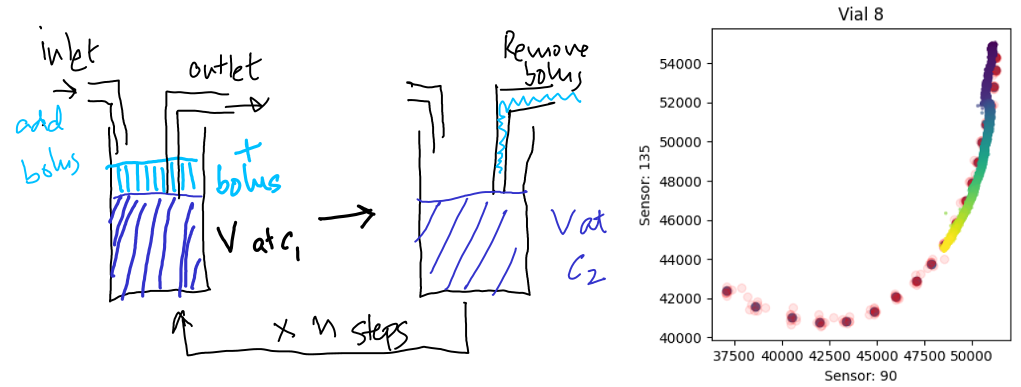 inlet
outlet
add
bolus
+
bolus
V at c1
Remove
bolus
V at
C2
x n steps
Vial 8
Sensor: 135
54000
52000
50000
48000
46000
44000
42000
40000
37500 40000 42500 45000 47500 50000
Sensor: 90